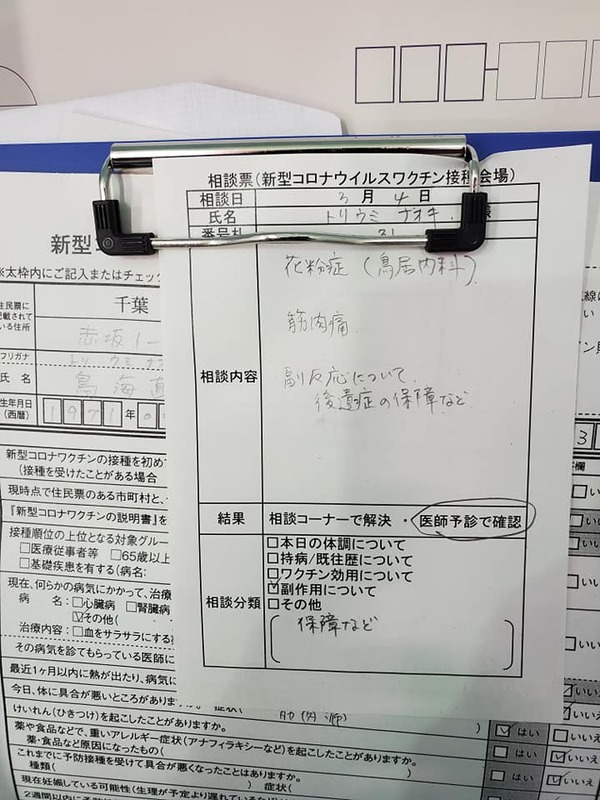 相談票(新型コロナウイルスワクチン接種会場)
相談日 3月4日
氏名 トリウミ ナオキ 様
番号札 31
花粉症(鳥居内科)
筋肉痛
相談内容
副反応について
後遺症の保障など
結果 相談コーナーで解決・医師予診で確認
□本日の体調について
□持病/既往歴について
□ワクチン効用について
☑副作用について
相談分類
□その他
保障など
新型
※太枠内にご記入またはチェッ
千葉
赤坂1-
フリガナ トリウミナオ
氏名 鳥海直
生年月日(西暦) 1971年0
新型コロナワクチンの接種を初め
(接種を受けたことがある場合
現時点で住民票のある市町村と、
『新型コロナワクチンの説明書』を
接種順位の上位となる対象グルー
□医療従事者等 □65歳以上
□基礎疾患を有する(病名:
現在、何らかの病気にかかって、治療
病名:□心臓病 □腎臓病
☑その他(
治療内容:□血をサラサラにする
その病気を診てもらっている医師に
最近1ヶ月以内に熱が出たり、病気に
今日、体に具合が悪いところがありま 症状( 筋肉痛)
けいれん(ひきつけ)を起こしたことがありますか。
薬や食品などで、重いアレルギー症状(アナフィラキシーなど)を起こしたことがありますか。
薬・食品など原因になったもの( )
これまでに予防接種を受けて具合が悪くなったことはありますか。
種類( ) 症状(
現在妊娠している可能性(生理が予定より遅れているな
2週間以内に
☑はい □いいえ
□はい ☑いいえ
□はい ☑いいえ